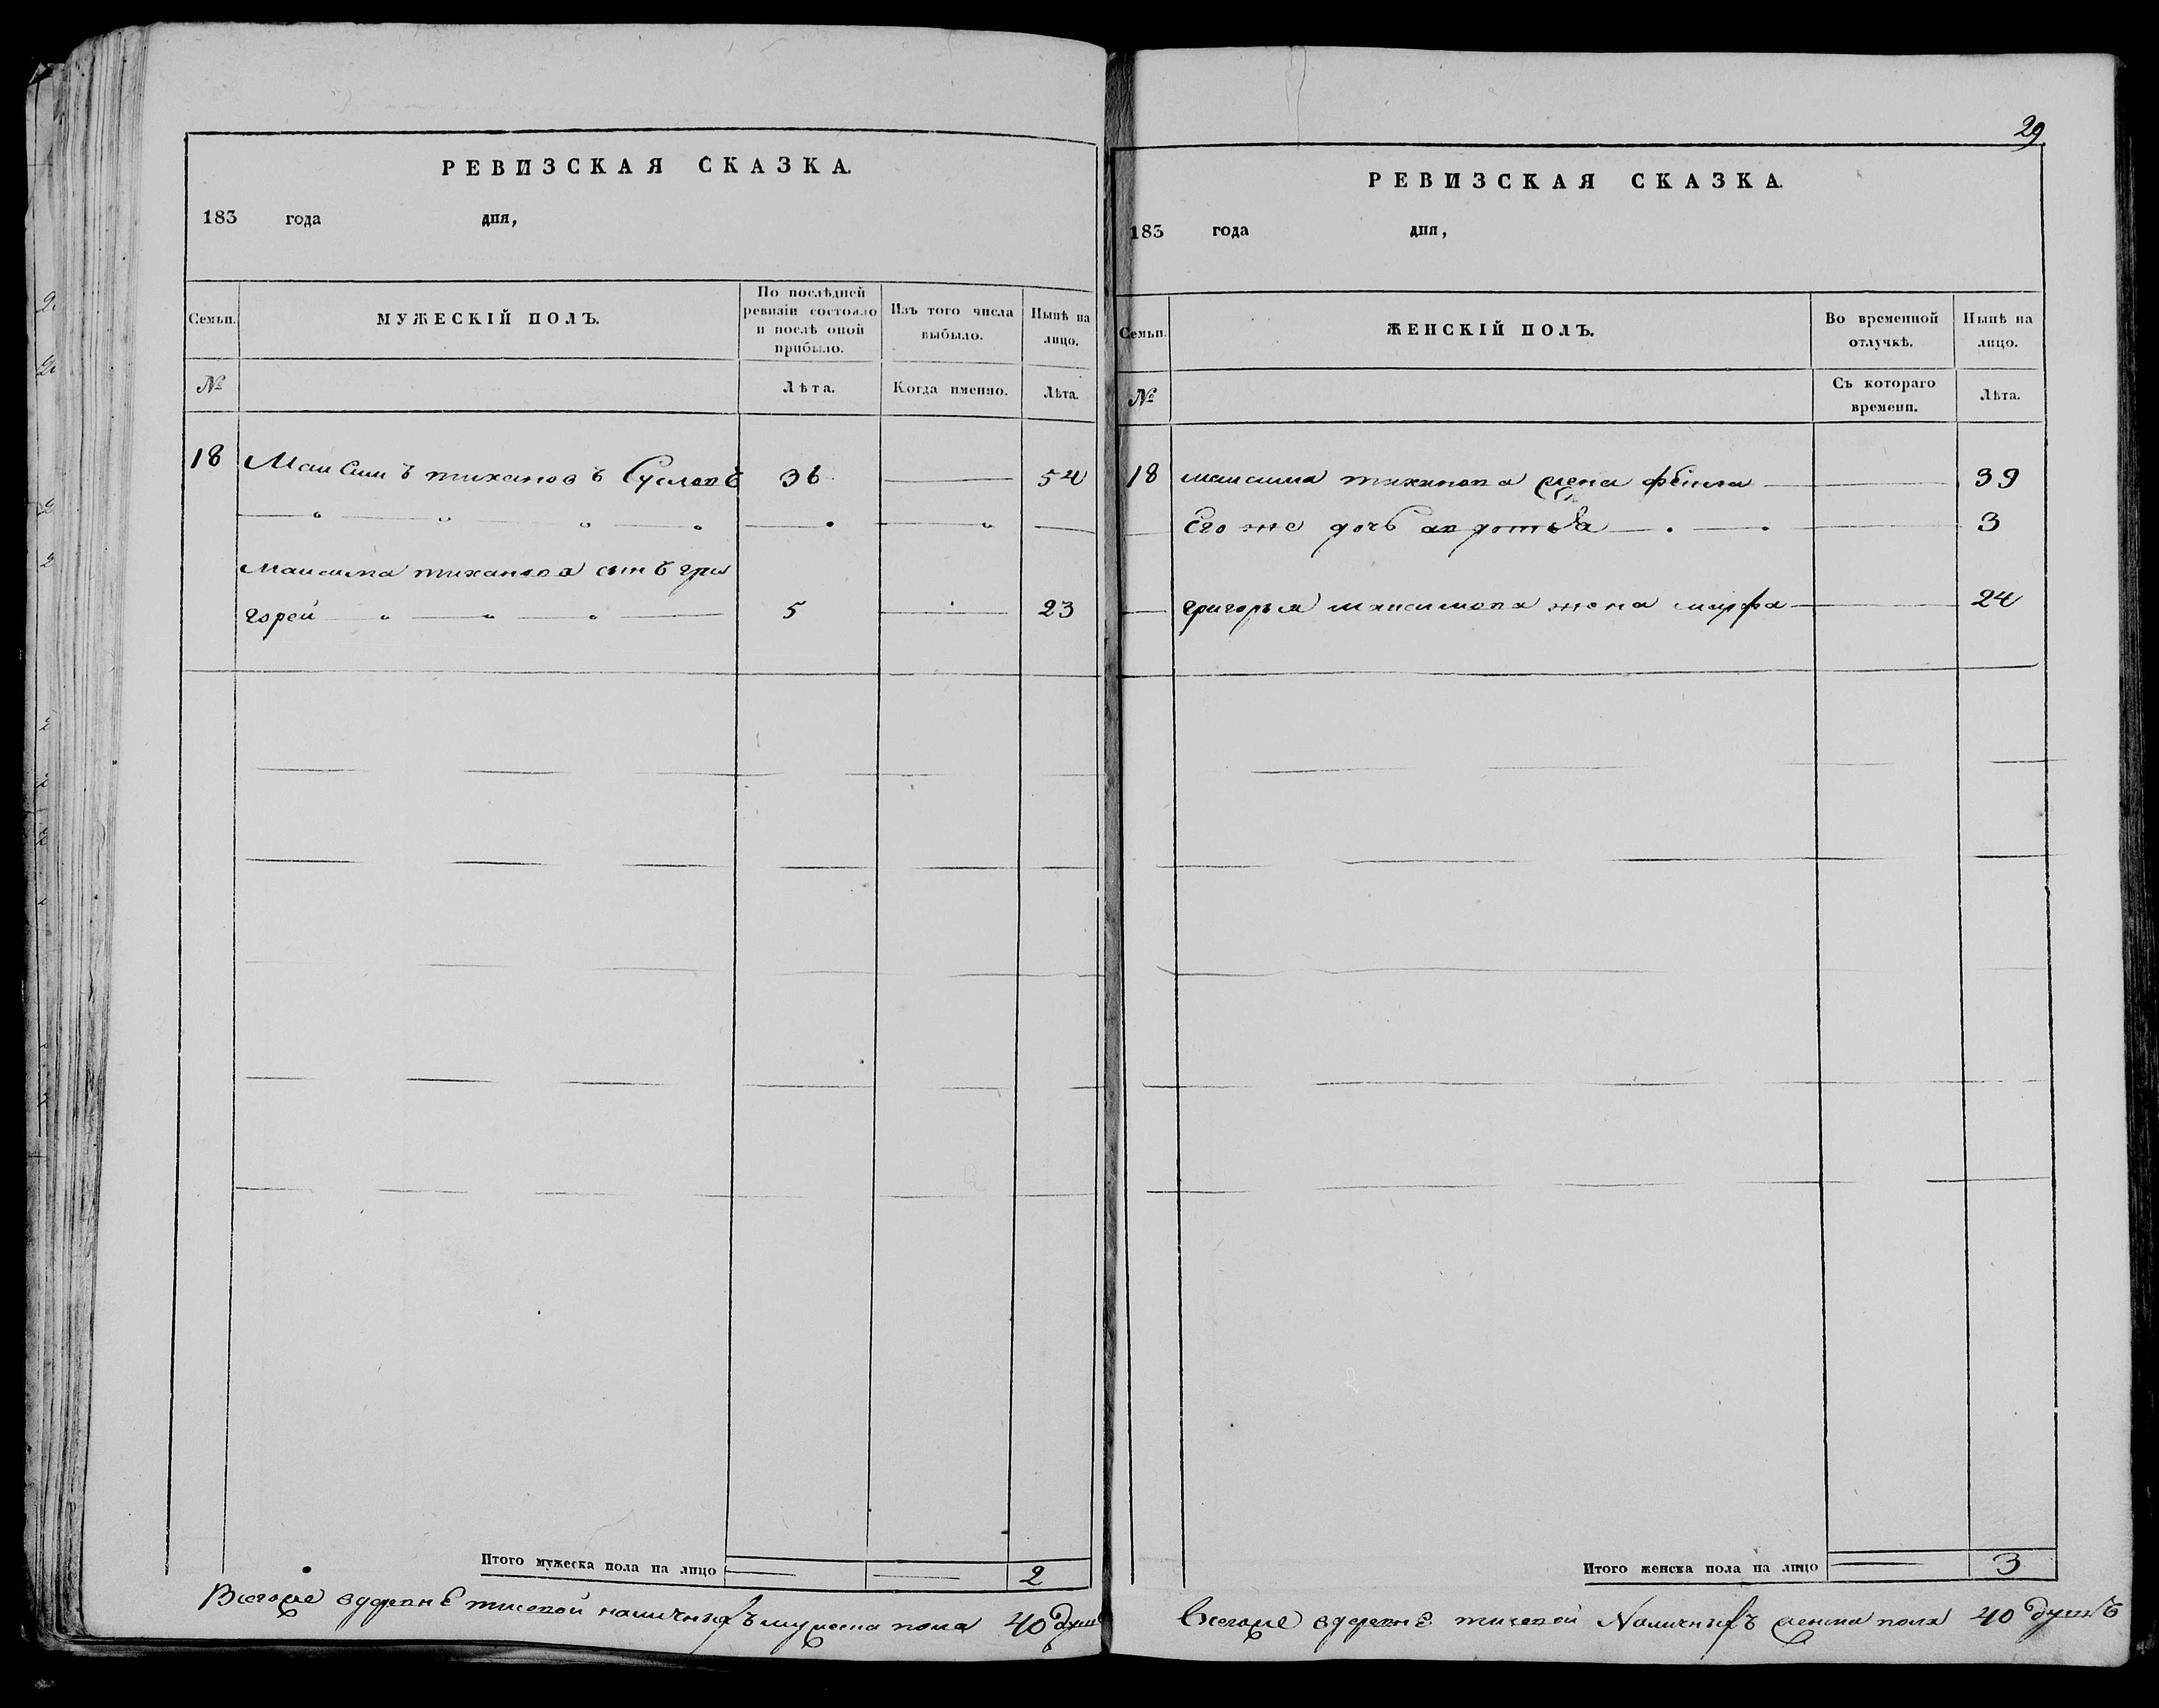 РЕВИЗСКАЯ СКАЗКА.
183 года дня,
Семьи.
МУЖЕСКІЙ ПОЛЪ.
По послѣдней ревизіи состояло и послѣ оной прибыло.
Изъ того числа выбыло.
Нынѣ на лицо.
№
Лѣта.
Когда именно.
Лѣта.
18 Максимъ тихановъ Сусловъ 36 54
Максима тиханова сынъ гри
горей 5 23
Итого мужеска пола на лицо 2
Всегоже вдеревнѣ тисовой наличныхъ мужеска пола 40 душ
29
РЕВИЗСКАЯ СКАЗКА.
183 года дня,
Семьи.
ЖЕНСКІЙ ПОЛЪ.
Во временной отлучкѣ.
Нынѣ на лицо.
№
Съ котораго времени.
Лѣта.
18 максима тиханова жена 39
Его же дочь авдотья 3
григорья максимова жена марфа 24
Итого женска пола на лицо 3
Всегоже вдеревнѣ тисовой Наличныхъ женска пола 40 душъ